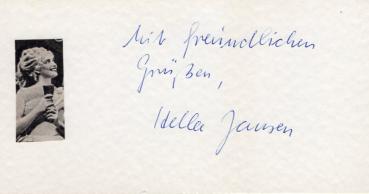 Mit freundlichen
Grüßen,
Hella Jansen